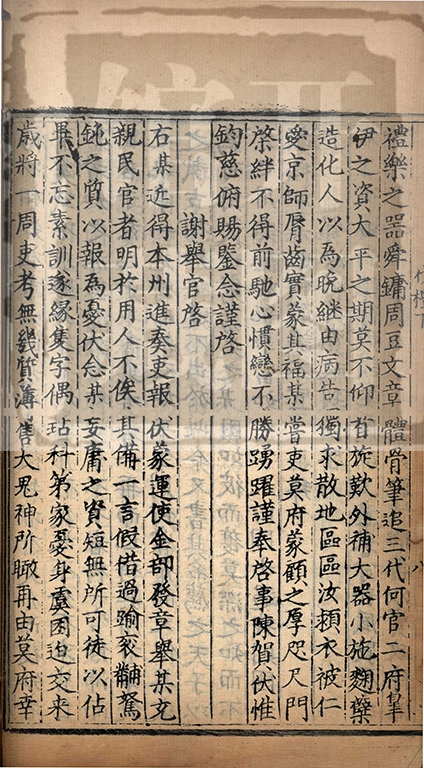 禮樂之器舜鏞周豆文章體骨筆追三代何官二府皐
伊之資太平之期莫不仰首旋歎外補大器小施麴糵
造化人以為晚継由病告獨求散地區區汝頴衣被仁
愛京師脣齒實蒙其福某嘗吏莫府蒙顧之厚咫尺門
棨絆不得前馳心慣戀不勝踴躍謹奉啓事陳賀伏惟
鈞慈俯賜鑒念謹啓
謝舉官啓
右某近得本州進奏吏報伏蒙運使金部發章舉某充
親民官者明於用人不俟其備一言假借過踰衮黼駑
鈍之質以報為憂伏念某妄庸之資短無所可徒以佔
畢不忘素訓遂緣集字偶玷科第家憂身虞困迫交来
歳將一周吏考無幾資簿售大鬼神所瞰再由莫府幸